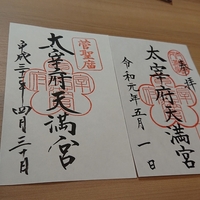 菅聖廟
太宰府天満宮
平成三十一年四月三十日
奉拝
太宰府天満宮
令和元年五月一日